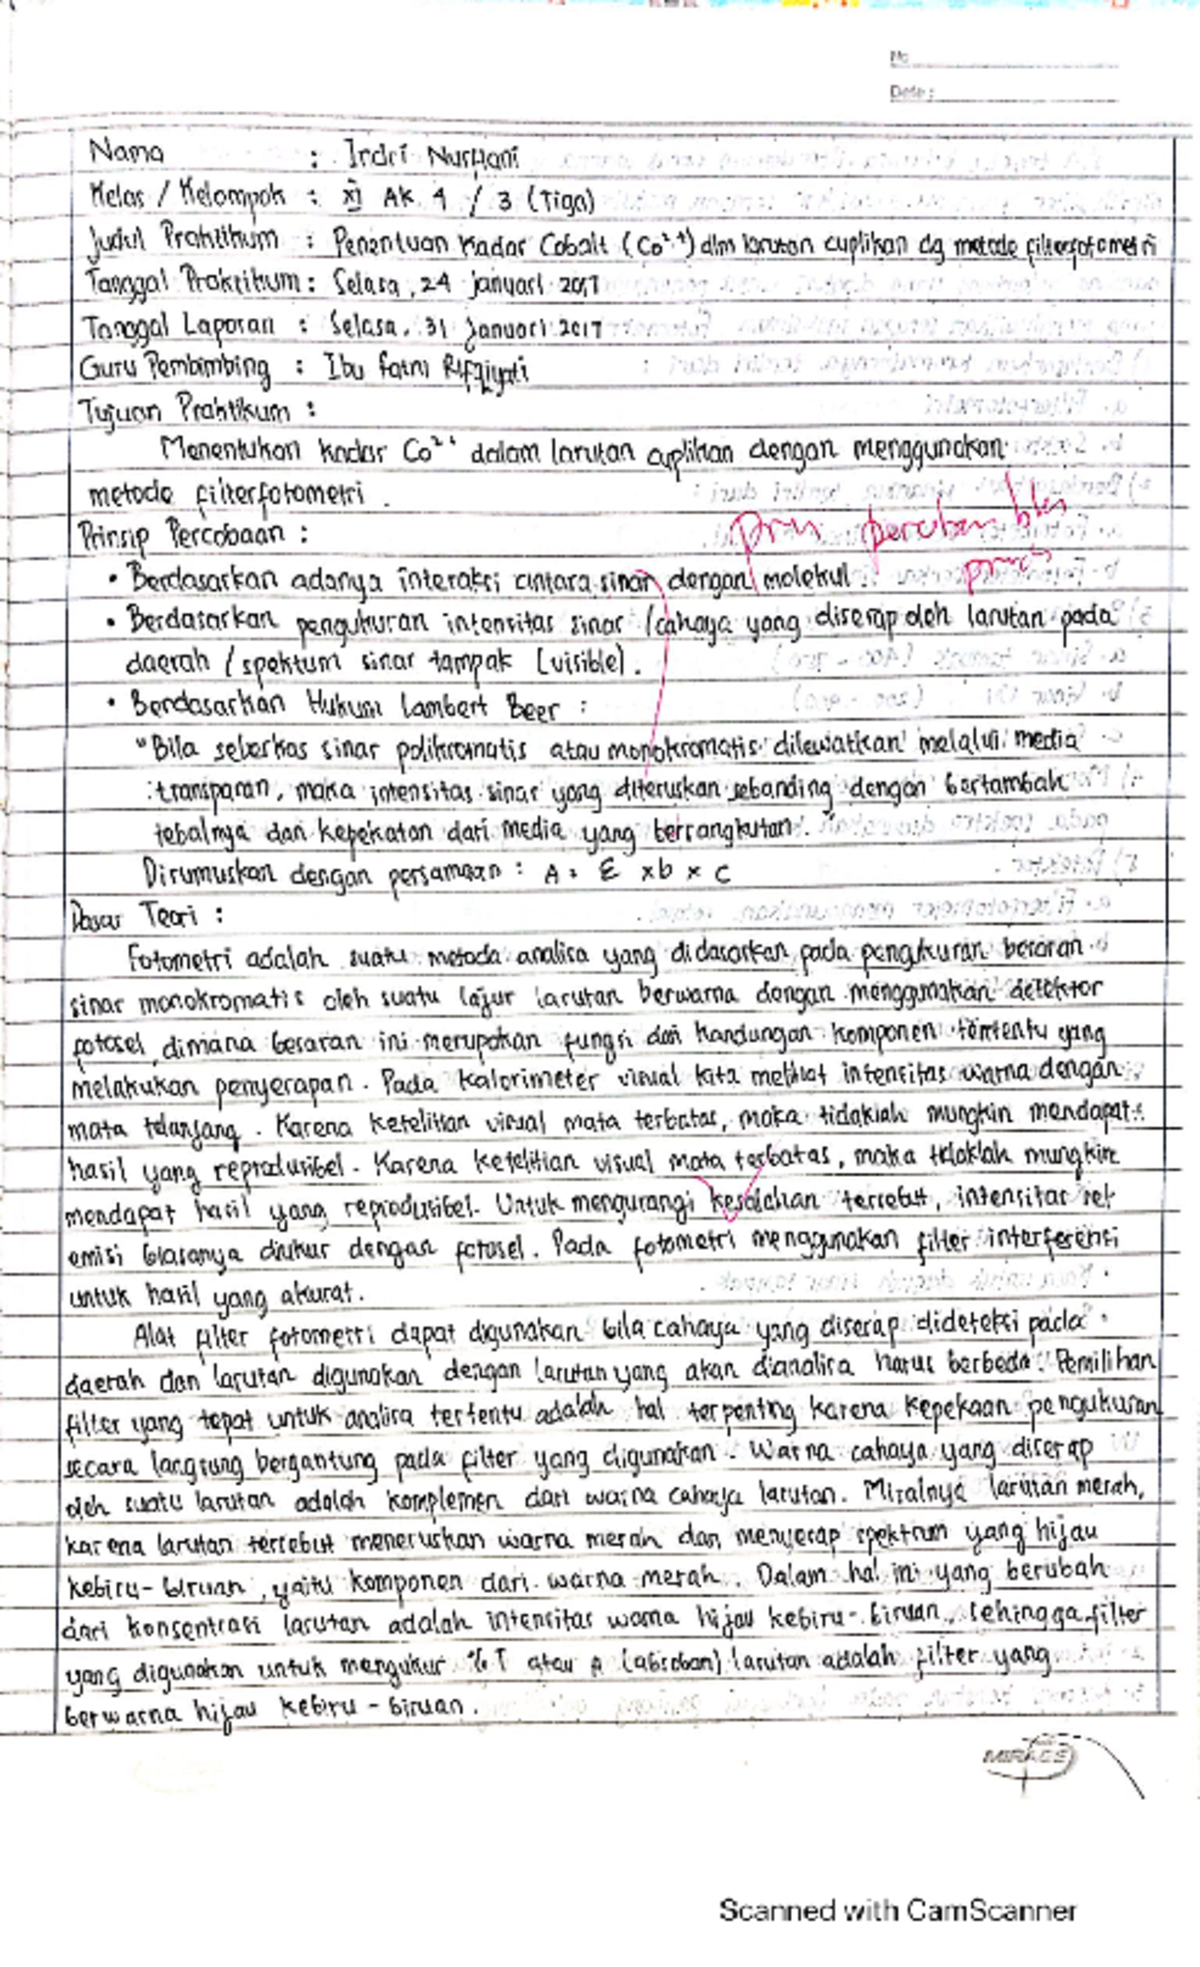 No
Date :
Nama : Irdri Nurfiani
Kelas / Kelompok : XI AK 4 / 3 (Tiga)
Judul Praktikum : Penentuan Kadar Cobalt (Co²⁺) dlm larutan cuplikan dg metode filterfotometri
Tanggal Praktikum : Selasa, 24 Januari 2017
Tanggal Laporan : Selasa, 31 Januari 2017
Guru Pembimbing : Ibu Rifqiyati
Tujuan Praktikum :
Menentukan kadar Co²⁺ dalam larutan cuplikan dengan menggunakan
metode filterfotometri.
Prinsip Percobaan :
• Berdasarkan adanya interaksi antara sinar dengan molekul
• Berdasarkan pengukuran intensitas sinar / cahaya yang diserap oleh larutan pada
daerah / spektum sinar tampak (visible).
• Berdasarkan Hukum Lambert Beer :
"Bila seberkas sinar polikromatis atau monokromatis dilewatkan melalui media
transparan, maka intensitas sinar yang diteruskan sebanding dengan bertambah
tebalnya dan kepekatan dari media yang bersangkutan."
Dirumuskan dengan persamaan : A = ε x b x c
Dasar Teori :
Fotometri adalah suatu metoda analisa yang didasarkan pada pengukuran besaran
sinar monokromatis oleh suatu lajur larutan berwarna dengan menggunakan detektor
fotosel, dimana besaran ini merupakan fungsi dari kandungan komponen tertentu yang
melakukan penyerapan. Pada kalorimeter visual kita melihat intensitas warna dengan
mata telanjang. Karena ketelitian visual mata terbatas, maka tidaklah mungkin mendapat
hasil yang reprodusibel. Karena ketelitian visual mata terbatas, maka tidaklah mungkin
mendapat hasil yang reprodusibel. Untuk mengurangi kesalahan tersebut, intensitas rel
emisi biasanya diukur dengan fotosel. Pada fotometri menggunakan filter interferensi
untuk hasil yang akurat.
Alat filter fotometri dapat digunakan bila cahaya yang diserap dideteksi pada
daerah dan larutan digunakan dengan larutan yang akan dianalisa harus berbeda. Pemilihan
filter yang tepat untuk analisa tertentu adalah hal terpenting karena kepekaan pengukuran
secara langsung bergantung pada filter yang digunakan. Warna cahaya yang diserap
oleh suatu larutan adalah komplemen dari warna cahaya larutan. Misalnya larutan merah,
karena larutan tersebut meneruskan warna merah dan menyerap spektrum yang hijau
kebiru-biruan, yaitu komponen dari warna merah. Dalam hal ini yang berubah
dari konsentrasi larutan adalah intensitas warna hijau kebiru-biruan, sehingga filter
yang digunakan untuk mengukur % T atau A (absorban) larutan adalah filter yang
berwarna hijau kebiru - biruan.
MIRAGE
Scanned with CamScanner